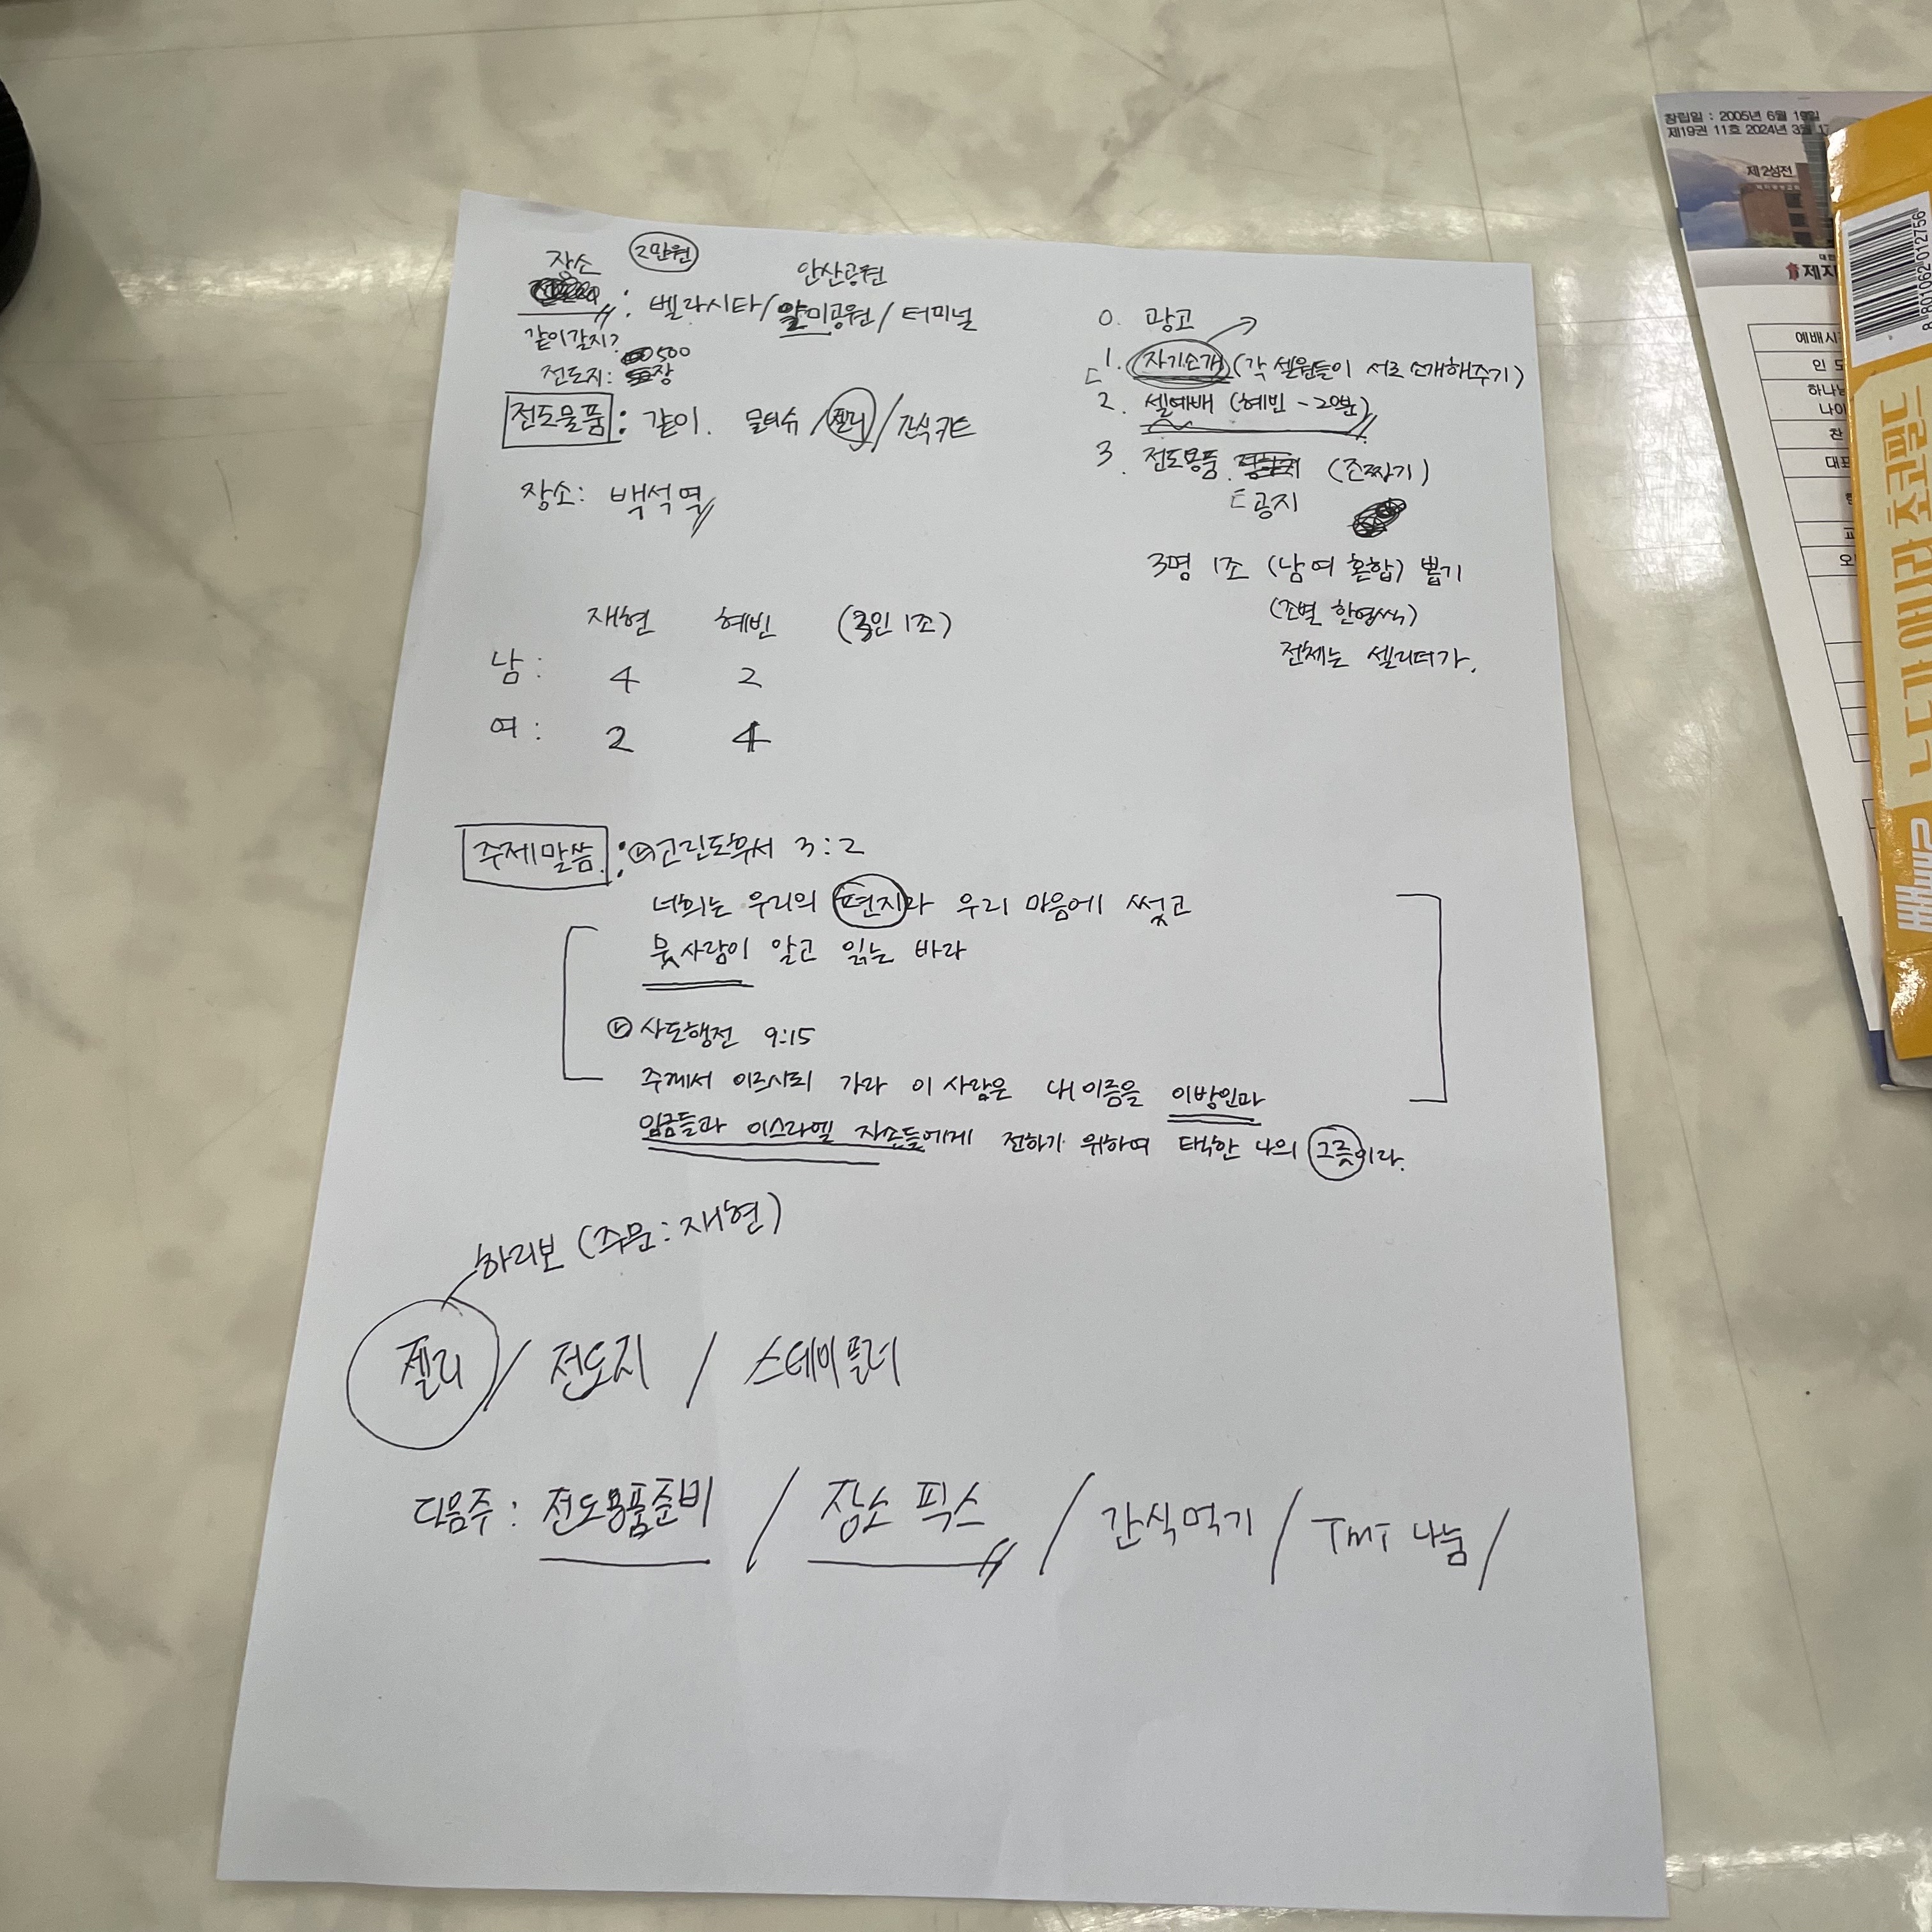 장소
2만원
안산공원
: 벨라시타/알미공원/터미널
같이갈지?
500
전도지: 장
전도물품: 같이. 물티슈/젤리/간식키트
장소: 백석역
0. 광고
1. 자기소개 (각 셀원들이 서로 소개해주기)
2. 셀예배 (혜빈 - 20분)
3. 전도용품 (조짜기)
공지
3명 1조 (남여 혼합) 뽑기
(조별 한명씩)
전체는 셀리더가.
재현 혜빈 (3인 1조)
남: 4 2
여: 2 4
주제말씀: 고린도후서 3:2
너희는 우리의 편지라 우리 마음에 썼고
뭇사람이 알고 읽는 바라
사도행전 9:15
주께서 이르시되 가라 이 사람은 내 이름을 이방인과
임금들과 이스라엘 자손들에게 전하기 위하여 택한 나의 그릇이라.
하리보 (주문: 재현)
젤리 / 전도지 / 스테이플러
다음주: 전도용품준비 / 장소 픽스 / 간식먹기 / TMT 나눔 /
창립일 : 2005년 6월 19일
제19권 11호 2024년 3월 17
제2성전
제자
예배시
인 도
하나님
나이
찬
대표
교
오
8 801062 012756
빼빼로
누다 헤라 초코필드